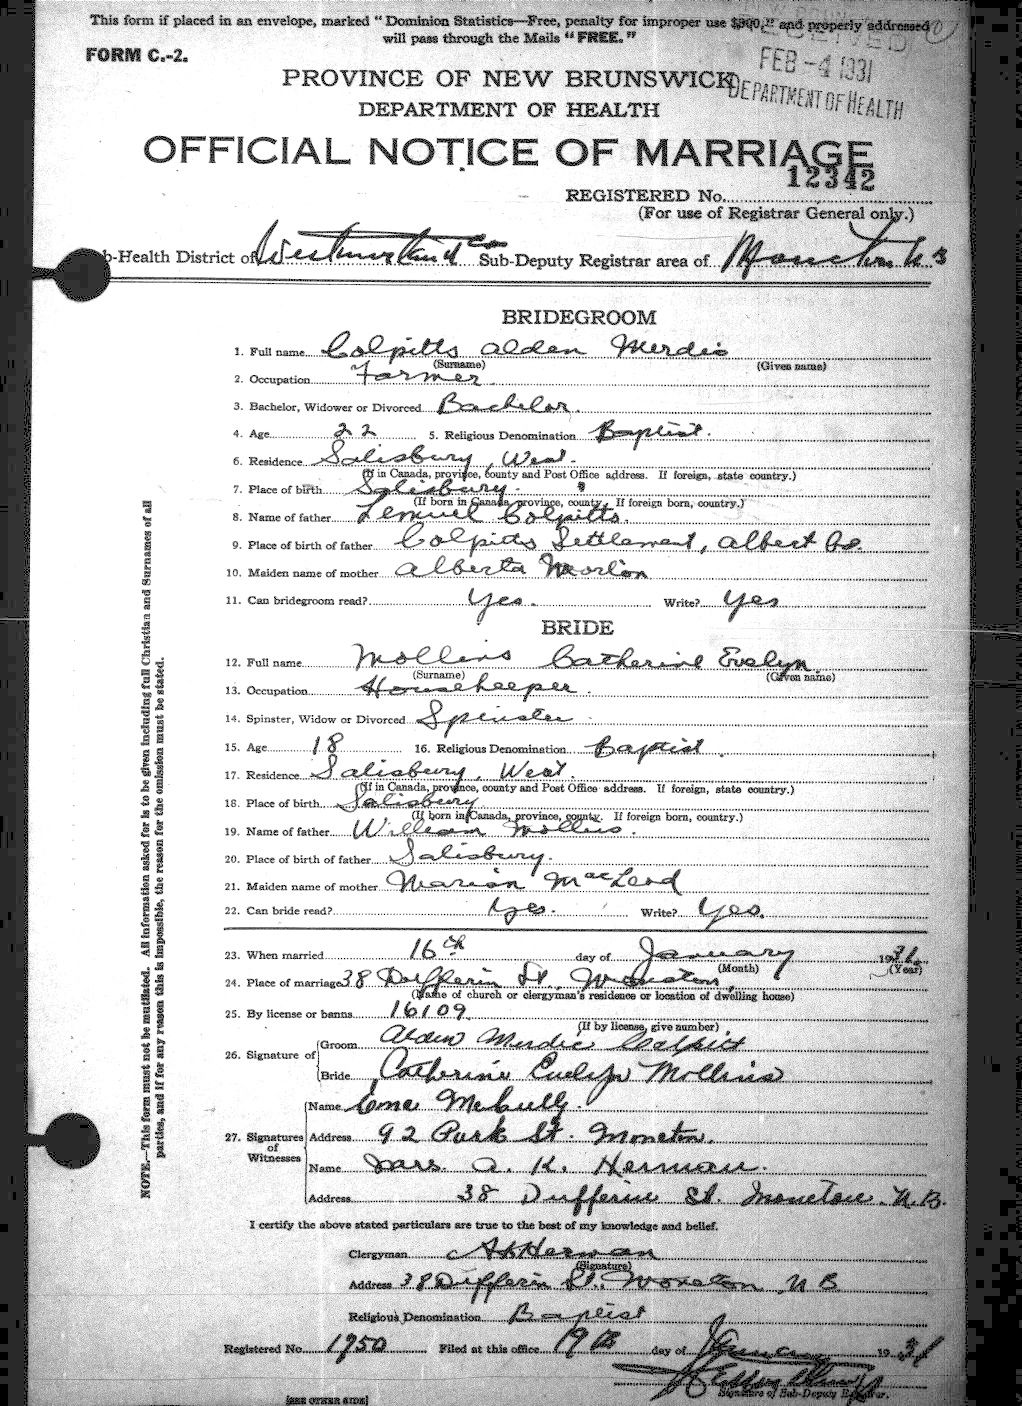 This form if placed in an envelope, marked "Dominion Statistics—Free, penalty for improper use $300," and properly addressed
will pass through the Mails "FREE."
FORM C.-2.
FEB -4 1931
DEPARTMENT OF HEALTH
PROVINCE OF NEW BRUNSWICK
DEPARTMENT OF HEALTH
OFFICIAL NOTICE OF MARRIAGE
12342
REGISTERED No.
(For use of Registrar General only.)
b-Health District of Westmorland Co Sub-Deputy Registrar area of Moncton N B
BRIDEGROOM
1. Full name Colpitts Alden Merdic
(Surname) (Given name)
2. Occupation Farmer
3. Bachelor, Widower or Divorced Bachelor.
4. Age 22 5. Religious Denomination Baptist.
6. Residence Salisbury, West.
(If in Canada, province, county and Post Office address. If foreign, state country.)
7. Place of birth Salisbury.
(If born in Canada, province, county. If foreign born, country.)
8. Name of father Lemuel Colpitts.
9. Place of birth of father Colpitts Settlement, Albert Co.
10. Maiden name of mother Alberta
11. Can bridegroom read? Yes. Write? Yes
BRIDE
12. Full name Mollins Catherine Evelyn
(Surname) (Given name)
13. Occupation Housekeeper.
14. Spinster, Widow or Divorced Spinster
15. Age 18 16. Religious Denomination Baptist.
17. Residence Salisbury, West.
(If in Canada, province, county and Post Office address. If foreign, state country.)
18. Place of birth Salisbury
(If born in Canada, province, county. If foreign born, country.)
19. Name of father William Mollins.
20. Place of birth of father Salisbury.
21. Maiden name of mother Marion MacLeod
22. Can bride read? Yes. Write? Yes.
23. When married 16th day of January 1931
(Month) (Year)
24. Place of marriage 38 Dufferin St. Moncton,
(Name of church or clergyman's residence or location of dwelling house)
25. By license or banns 16109
(If by license, give number)
26. Signature of Groom Alden Merdic Colpitts
Bride Catherine Evelyn Mollins
27. Signatures of Witnesses Name McCully.
Address 92 Park St. Moncton.
Name Mrs. A. K. Herman.
Address 38 Dufferin St. Moncton. N. B.
I certify the above stated particulars are true to the best of my knowledge and belief.
Clergyman A K Herman
(Signature)
Address 38 Dufferin St. Moncton N B
Religious Denomination Baptist
Registered No. 1750 Filed at this office 19th day of January 1931
Signature of Sub-Deputy Registrar.
[SEE OTHER SIDE]
NOTE.—This form must not be mutilated. All information asked for is to be given including full Christian and Surnames of all
parties, and if for any reason this is impossible, the reason for the omission must be stated.